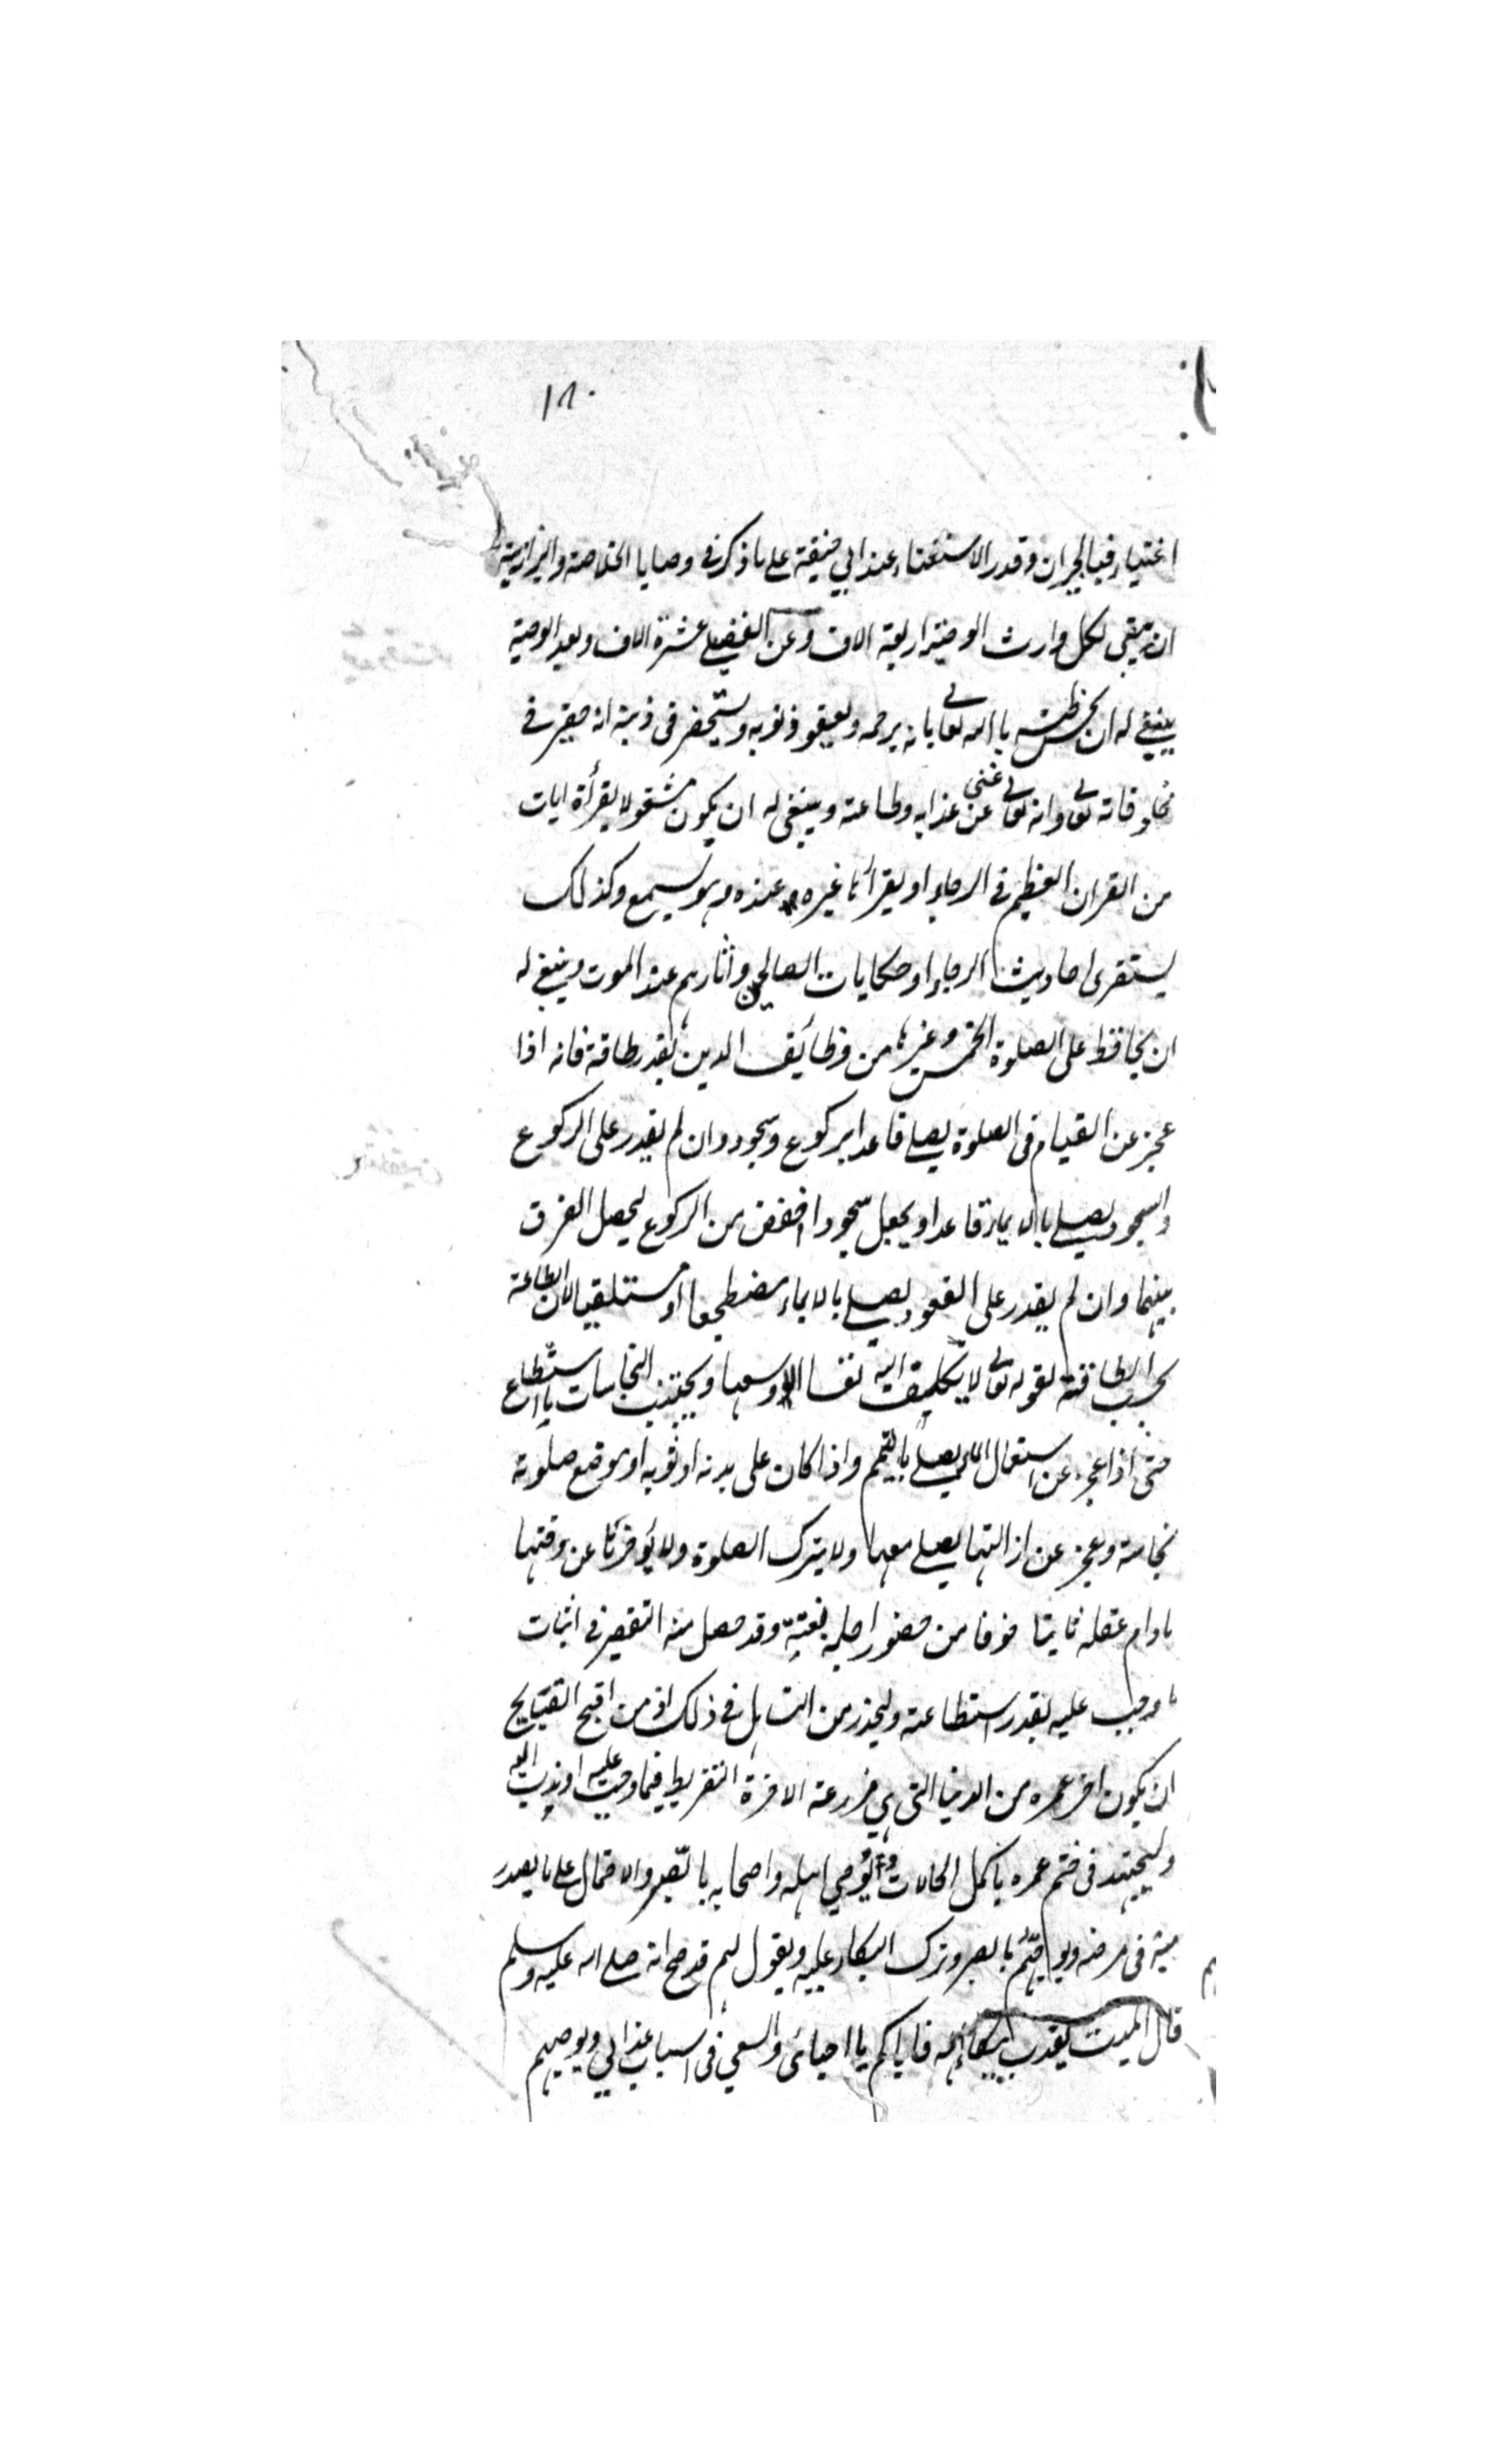 ١٨٠
اغنياء فبالجيران وقدر الاستغناء عند ابي حنيفة على ما ذكر في وصايا الخلاصة والبزازية
ان يبقى لكل وارث الوصية اربعة الاف وعن الفضلي عشرة الاف وبعد الوصية
ينبغي له ان يحسن ظنه بالله تعالى بانه يرحمه ويعفو ذنوبه ويستحضر في ذهنه انه حقير في
مخلوقاته تعالى وانه تعالى غني عن عذابه وطاعته وينبغي له ان يكون مشغولا بقرأة ايات
من القران العظيم في الرجاء او يقرأ ها غيره عنده وهو يسمع وكذلك
يستقرى احاديث الرجاء او حكايات الصالحين واثارهم عند الموت وينبغي له
ان يحافظ على الصلوة الخمس وغيرها من وظائف الدين بقدر طاقته فانه اذا
عجز عن القيام في الصلوة يصلي قاعدا بركوع وسجود وان لم يقدر على الركوع
والسجود يصلي بالايماء قاعدا ويجعل سجودا اخفض من الركوع ليحصل الفرق
بينهما وان لم يقدر على القعود يصلي بالايماء مضطجعا او مستلقيا لان الطاعة
بحسب الطاقة لقوله تعالى لا يكلف الله نفسا الا وسعها ويجتنب النجاسات ما استطاع
حتى اذا عجز عن استعمال الماء يصلي بالتيمم واذا كان على بدنه او ثوبه او موضع صلوته
نجاسة وعجز عن ازالتها يصلي معها ولا يترك الصلوة ولا يؤخرها عن وقتها
ما دام عقله ثابتا خوفا من حضور اجله بغتة وقد حصل منه التقصير في اثبات
ما وجب عليه بقدر استطاعته وليحذر من التساهل في ذلك اذ من اقبح القبايح
ان يكون اخر عمره من الدنيا التي هي مزرعة الاخرة التفريط فيما وجب عليه او ندب اليه
وليجتهد في ختم عمره باكمل الحالات و يوصي اهله واصحابه بالصبر والاحتمال على ما يصدر
منه في مرضه ويو بالصبر وترك البكاء عليه ويقول لهم قد صح انه صلى الله عليه وسلم
قال الميت يعذب ببكاء اهله فاياكم يا احبائي والسعي في اسباب عذابي ويوصيهم